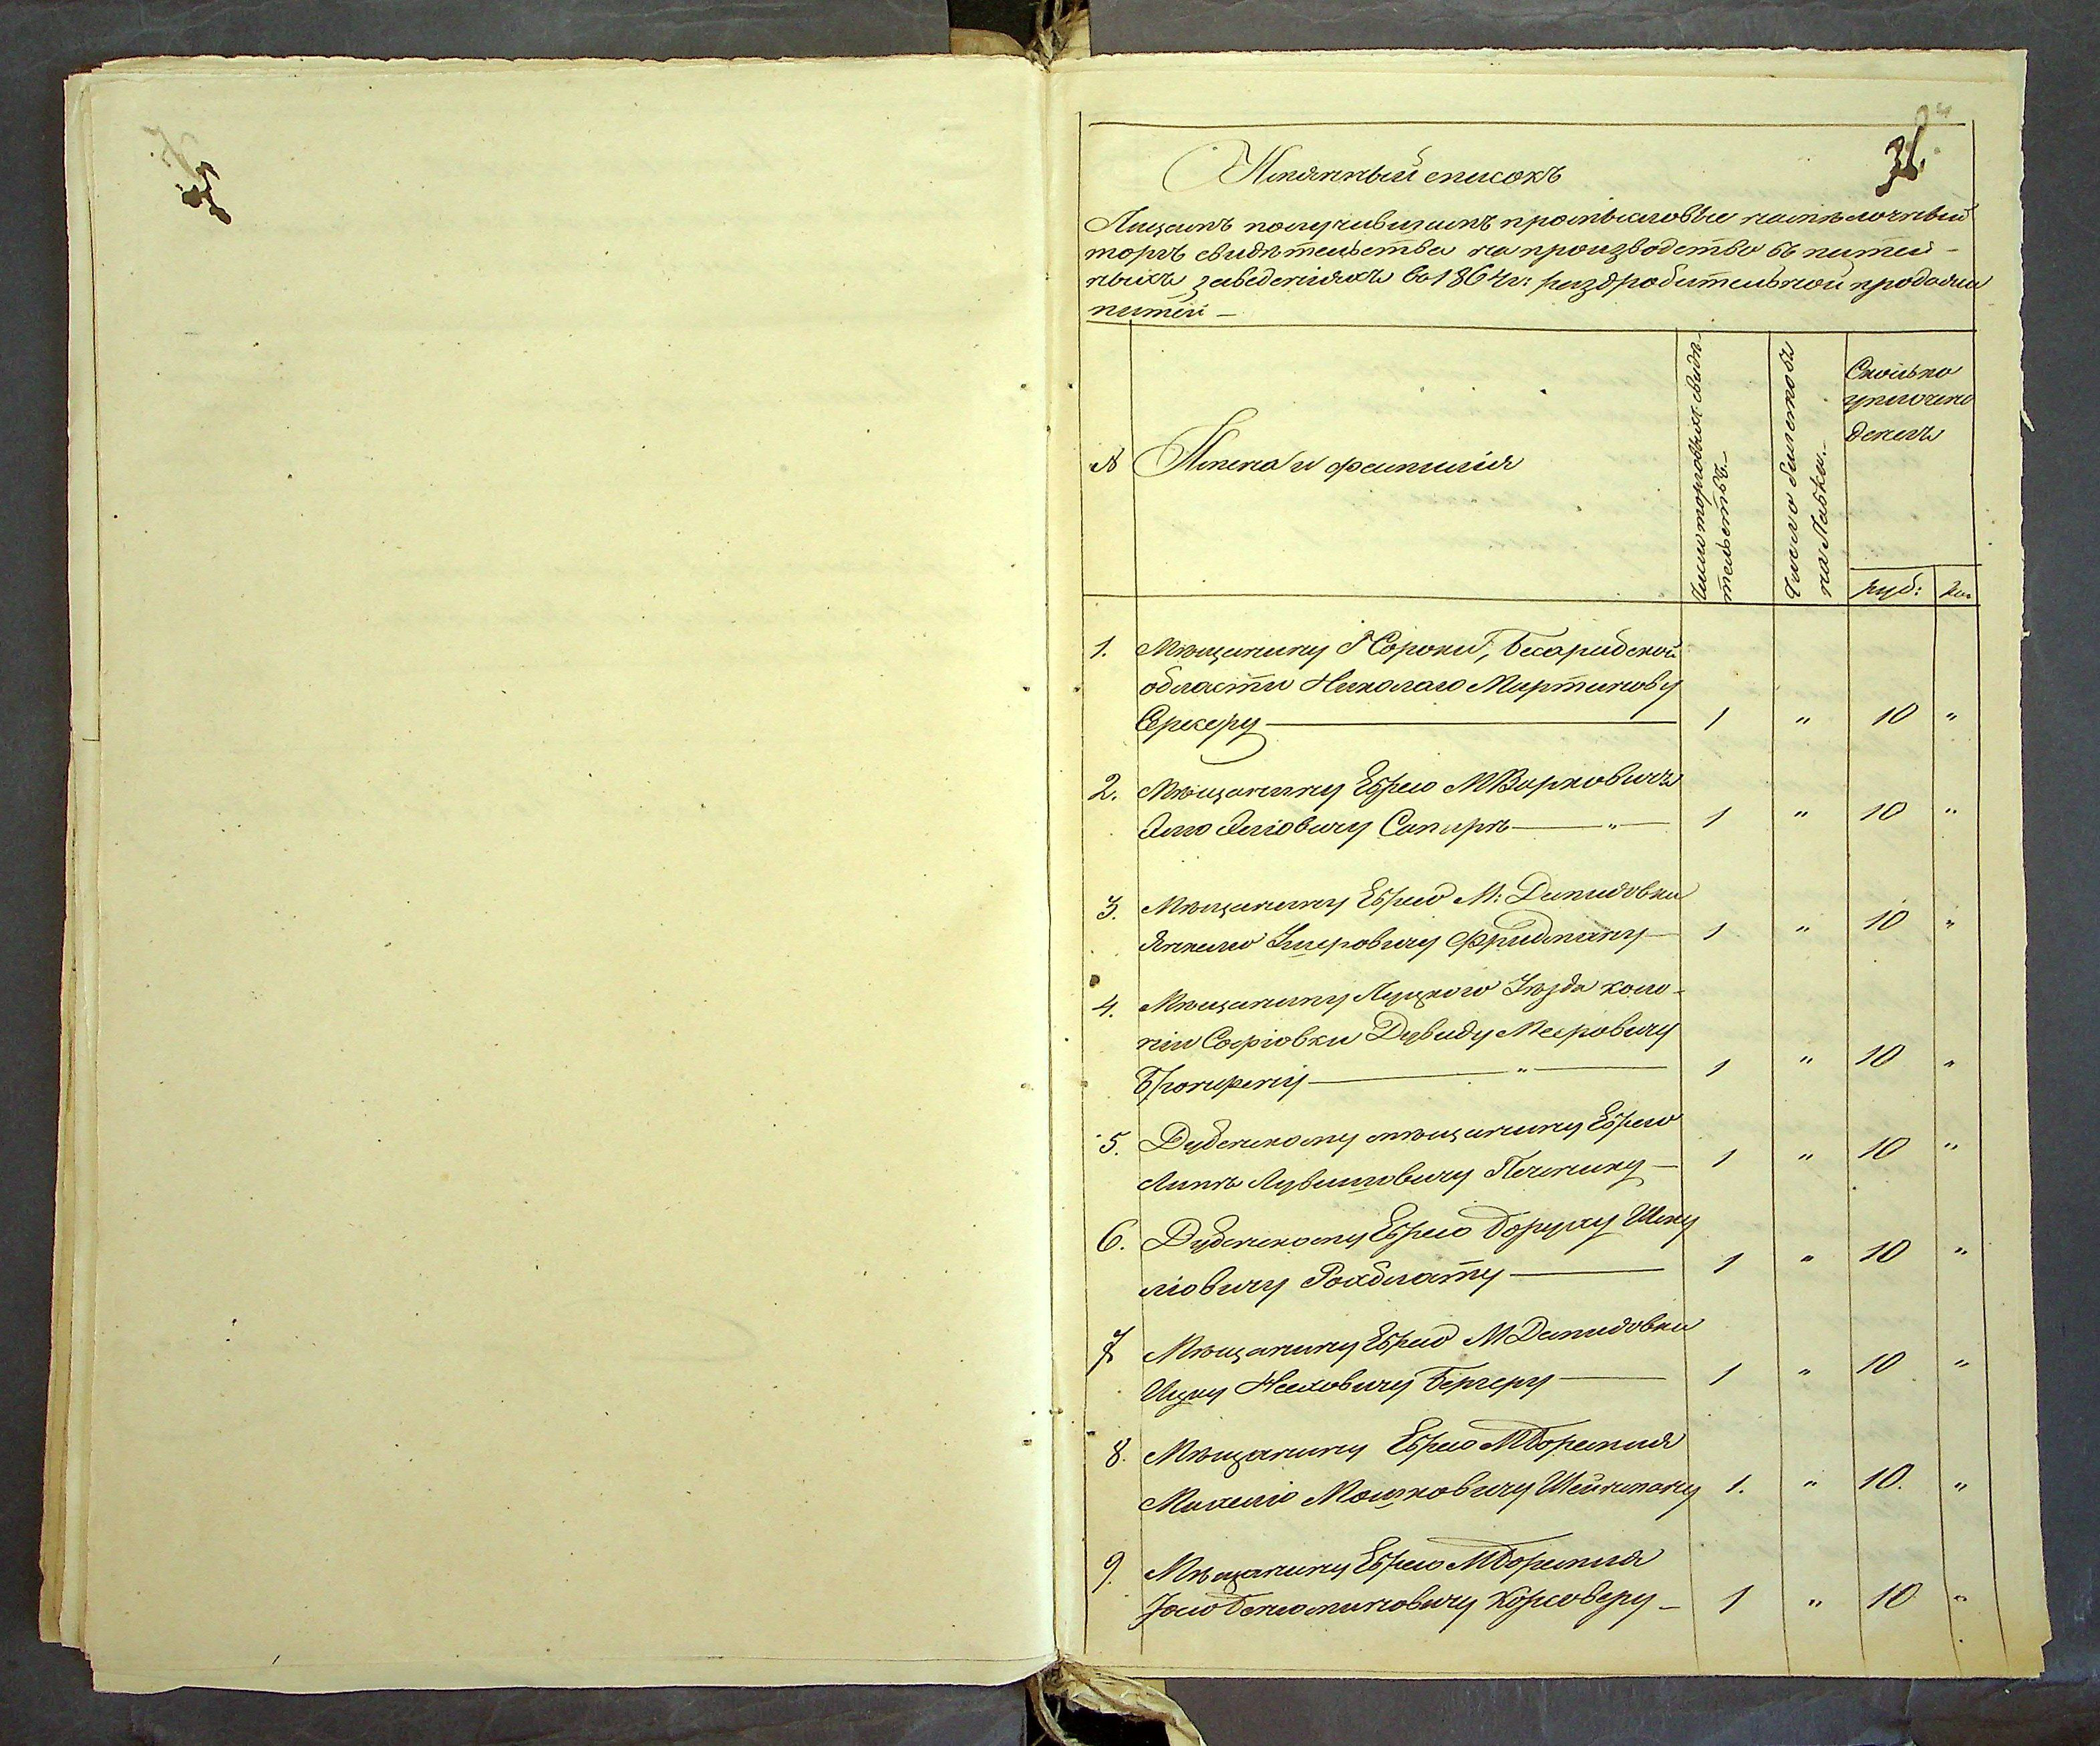 Именный списокъ
Лицамъ получившимъ промысловые на мѣлочный
торгъ свидѣтельства на производство въ питей-
ныхъ заведенiяхъ въ 1864 г: раздробительной продажи
питей —
№ Имена и фамилiя
Число торговыхъ свидѣ-
тельствъ. —
Число билетовъ
на лавки. —
Сколько
уплочено
денегъ
руб: коп
1. Мѣщанину Г Сороки, Бесарабской
области Николаю Мартинову
1 " 10 "
2. Мѣщанину Еврею М Варковичъ
1 " 10 "
3. Мѣщанину Еврею М: Демидовки
Янкелю Умеровичу Фридману — 1 " 10 "
4. Мѣщанину Луцкого Уѣзда коло-
нiи Софiовки Дувиду Мееровичу
— " — 1 " 10 "
5. Дубенскому мѣщанину Еврею
1 " 10 "
6. Дубенскому Еврею Боруху Шму
лiовичу Рохблату — 1 " 10 "
7 Мѣщанину Еврею М Демидовки
Ицку Неховичу Бергеру — 1 " 10 "
8. Мѣщанину Еврею М Боремля
Михелю Мошковичу Шейнману 1. " 10. "
9. Мѣщанину Еврею М Боремля
Бенюминовичу 1 " 10 "